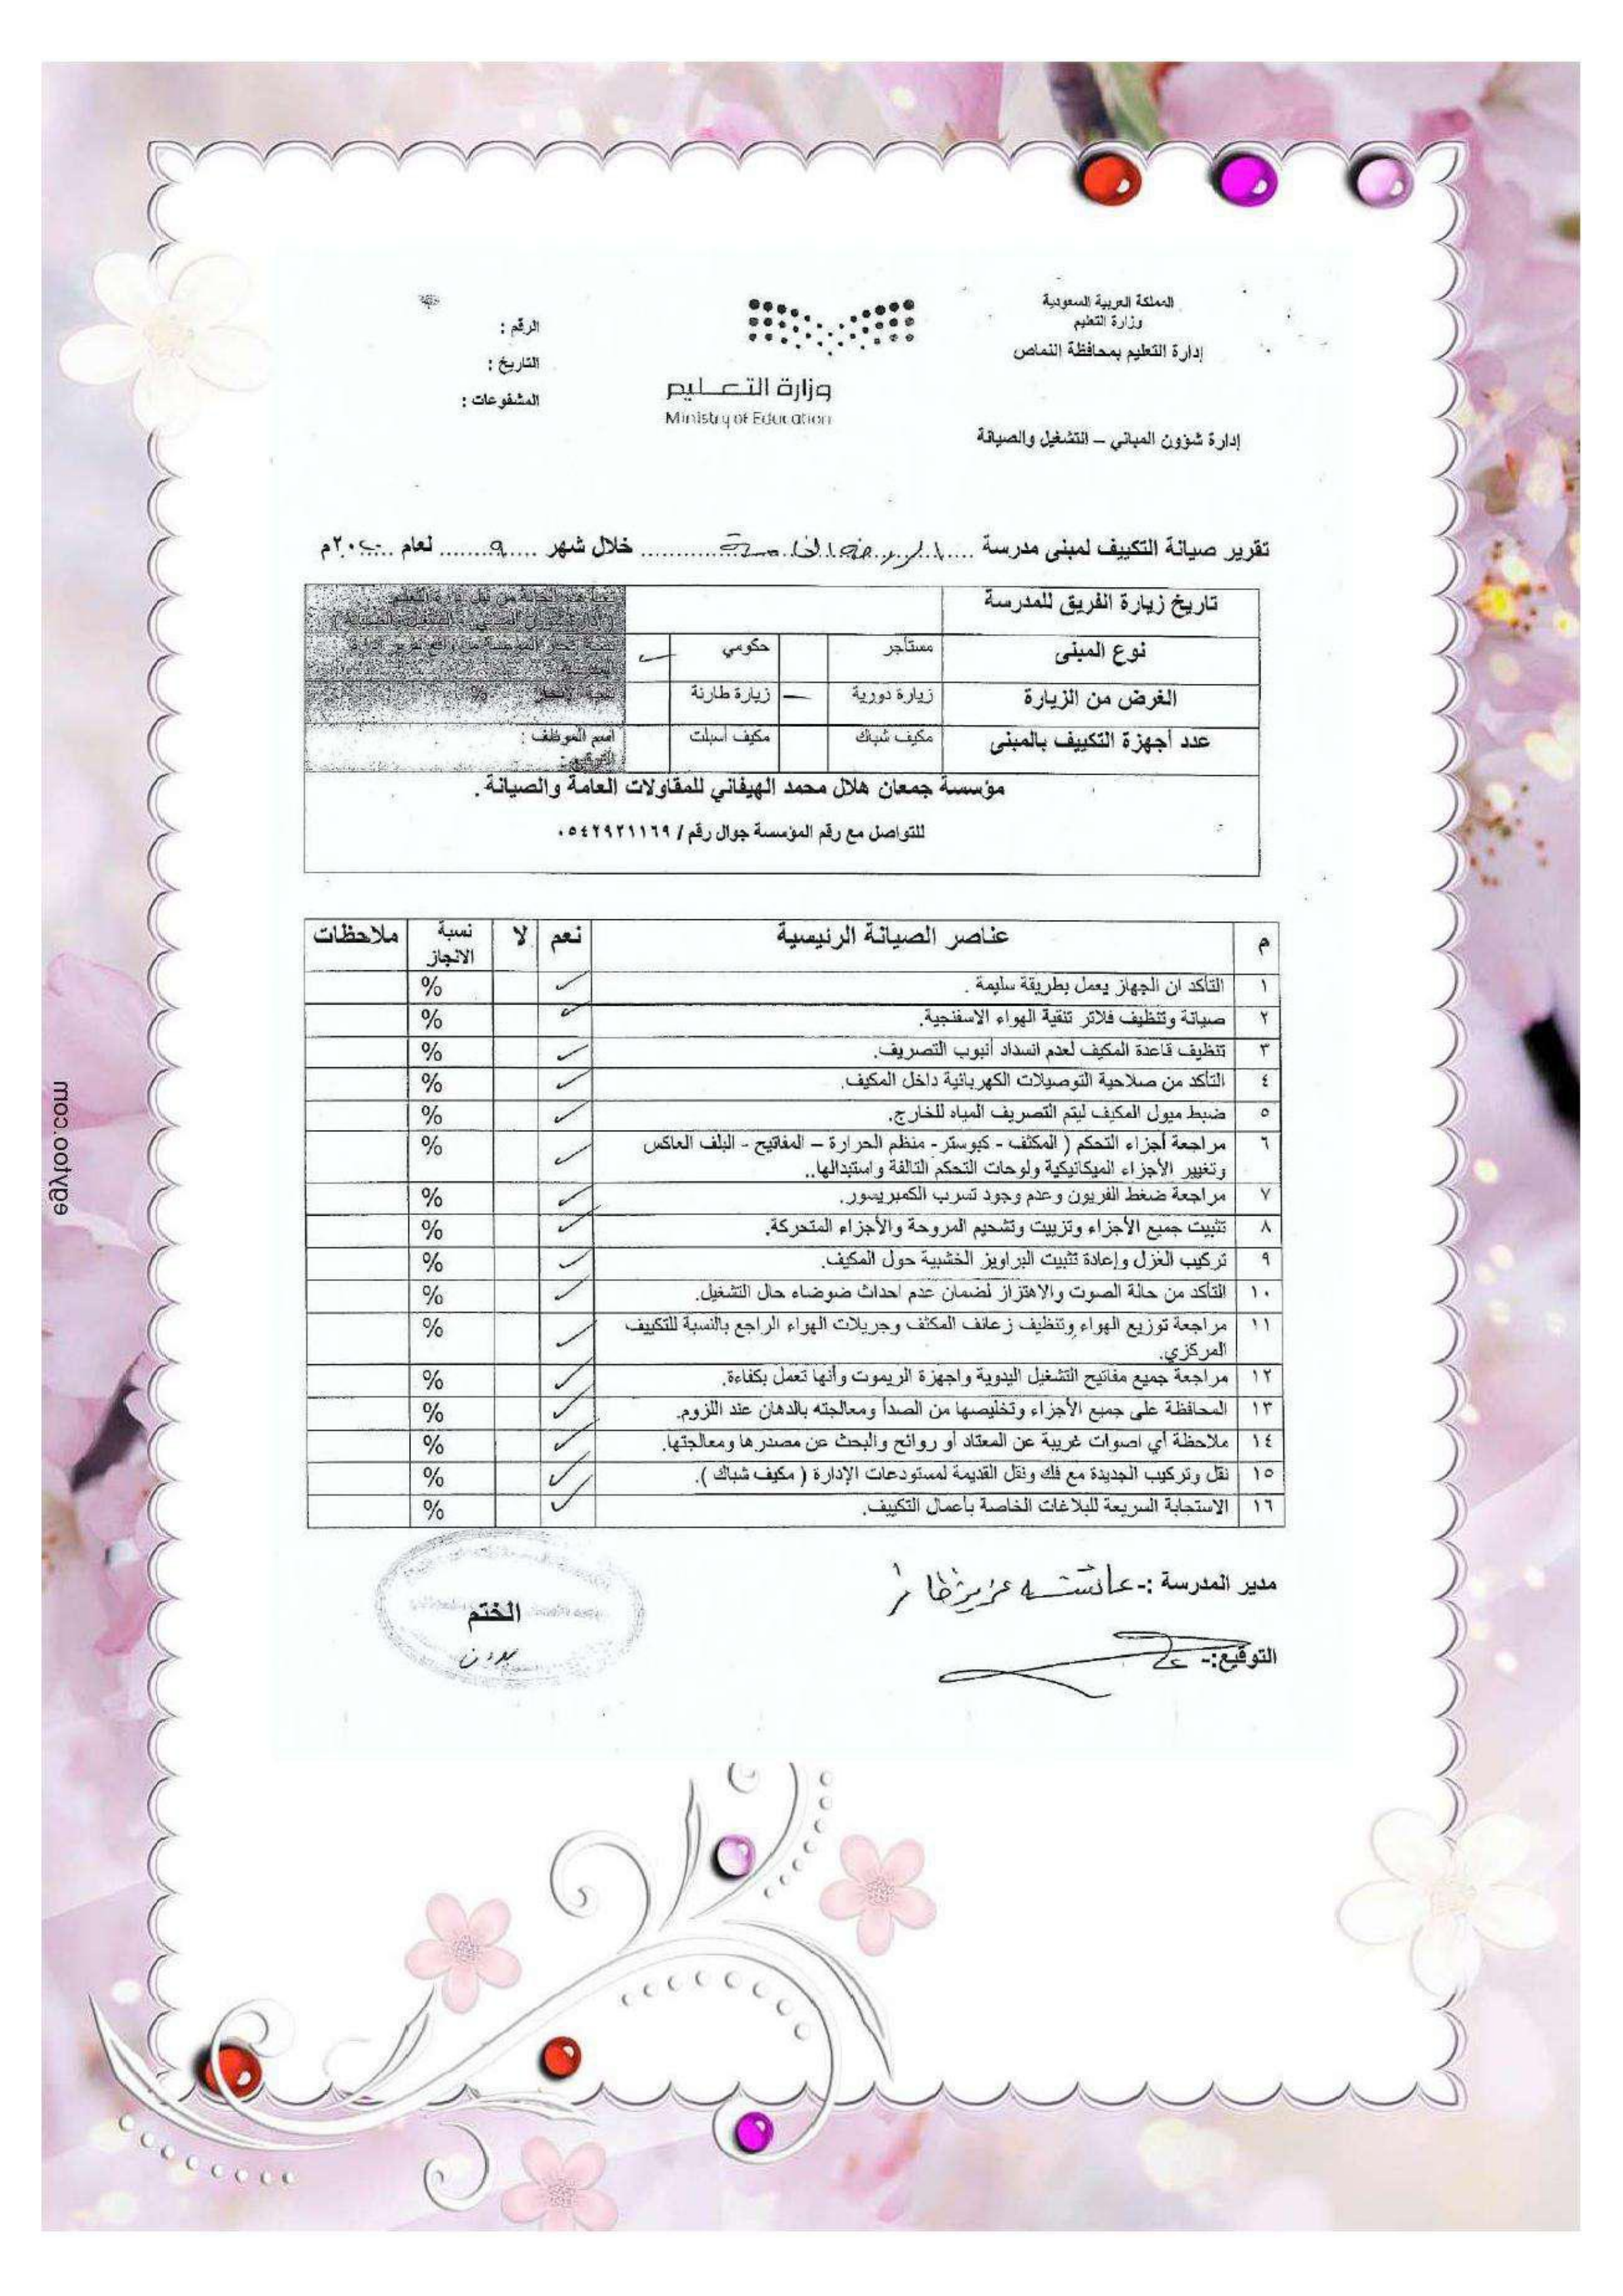 المملكة العربية السعودية
وزارة التعليم
إدارة التعليم بمحافظة النماص
إدارة شؤون المباني – التشغيل والصيانة
وزارة التعليم
Ministry of Education
الرقم :
التاريخ :
المشفوعات :
تقرير صيانة التكييف لمبنى مدرسة ..... الروضة الخامسة ..... خلال شهر ..... ٩ ..... لعام ..... ٢٠م
تاريخ زيارة الفريق للمدرسة
نوع المبنى مستأجر حكومي ✓
الغرض من الزيارة زيارة دورية – زيارة طارئة
عدد أجهزة التكييف بالمبنى مكيف شباك مكيف اسبلت
اسم الموظف :
التوقيع :
مؤسسة جمعان هلال محمد الهيفاني للمقاولات العامة والصيانة .
للتواصل مع رقم المؤسسة جوال رقم / ٠٥٤٢٩٢١١٦٩
م عناصر الصيانة الرئيسية نعم لا نسبة الانجاز ملاحظات
١ التأكد ان الجهاز يعمل بطريقة سليمة . ✓ %
٢ صيانة وتنظيف فلاتر تنقية الهواء الاسفنجية. ✓ %
٣ تنظيف قاعدة المكيف لعدم انسداد أنبوب التصريف. ✓ %
٤ التأكد من صلاحية التوصيلات الكهربائية داخل المكيف. ✓ %
٥ ضبط ميول المكيف ليتم التصريف المياه للخارج. ✓ %
٦ مراجعة أجزاء التحكم ( المكثف - كبوستر - منظم الحرارة – المفاتيح - البلف العاكس
وتغيير الأجزاء الميكانيكية ولوحات التحكم التالفة واستبدالها.. ✓ %
٧ مراجعة ضغط الفريون وعدم وجود تسرب الكمبريسور. ✓ %
٨ تثبيت جميع الأجزاء وتزييت وتشحيم المروحة والأجزاء المتحركة. ✓ %
٩ تركيب العزل وإعادة تثبيت البراويز الخشبية حول المكيف. ✓ %
١٠ التأكد من حالة الصوت والاهتزاز لضمان عدم احداث ضوضاء حال التشغيل. ✓ %
١١ مراجعة توزيع الهواء وتنظيف زعانف المكثف وجريلات الهواء الراجع بالنسبة للتكييف
المركزي. ✓ %
١٢ مراجعة جميع مفاتيح التشغيل اليدوية واجهزة الريموت وأنها تعمل بكفاءة. ✓ %
١٣ المحافظة على جميع الأجزاء وتخليصها من الصدأ ومعالجته بالدهان عند اللزوم. ✓ %
١٤ ملاحظة أي اصوات غريبة عن المعتاد أو روائح والبحث عن مصدرها ومعالجتها. ✓ %
١٥ نقل وتركيب الجديدة مع فك ونقل القديمة لمستودعات الإدارة ( مكيف شباك ). ✓ %
١٦ الاستجابة السريعة للبلاغات الخاصة بأعمال التكييف. ✓ %
مدير المدرسة :- عائشة عزيز ظافر
التوقيع:-
الختم
egytoo.com